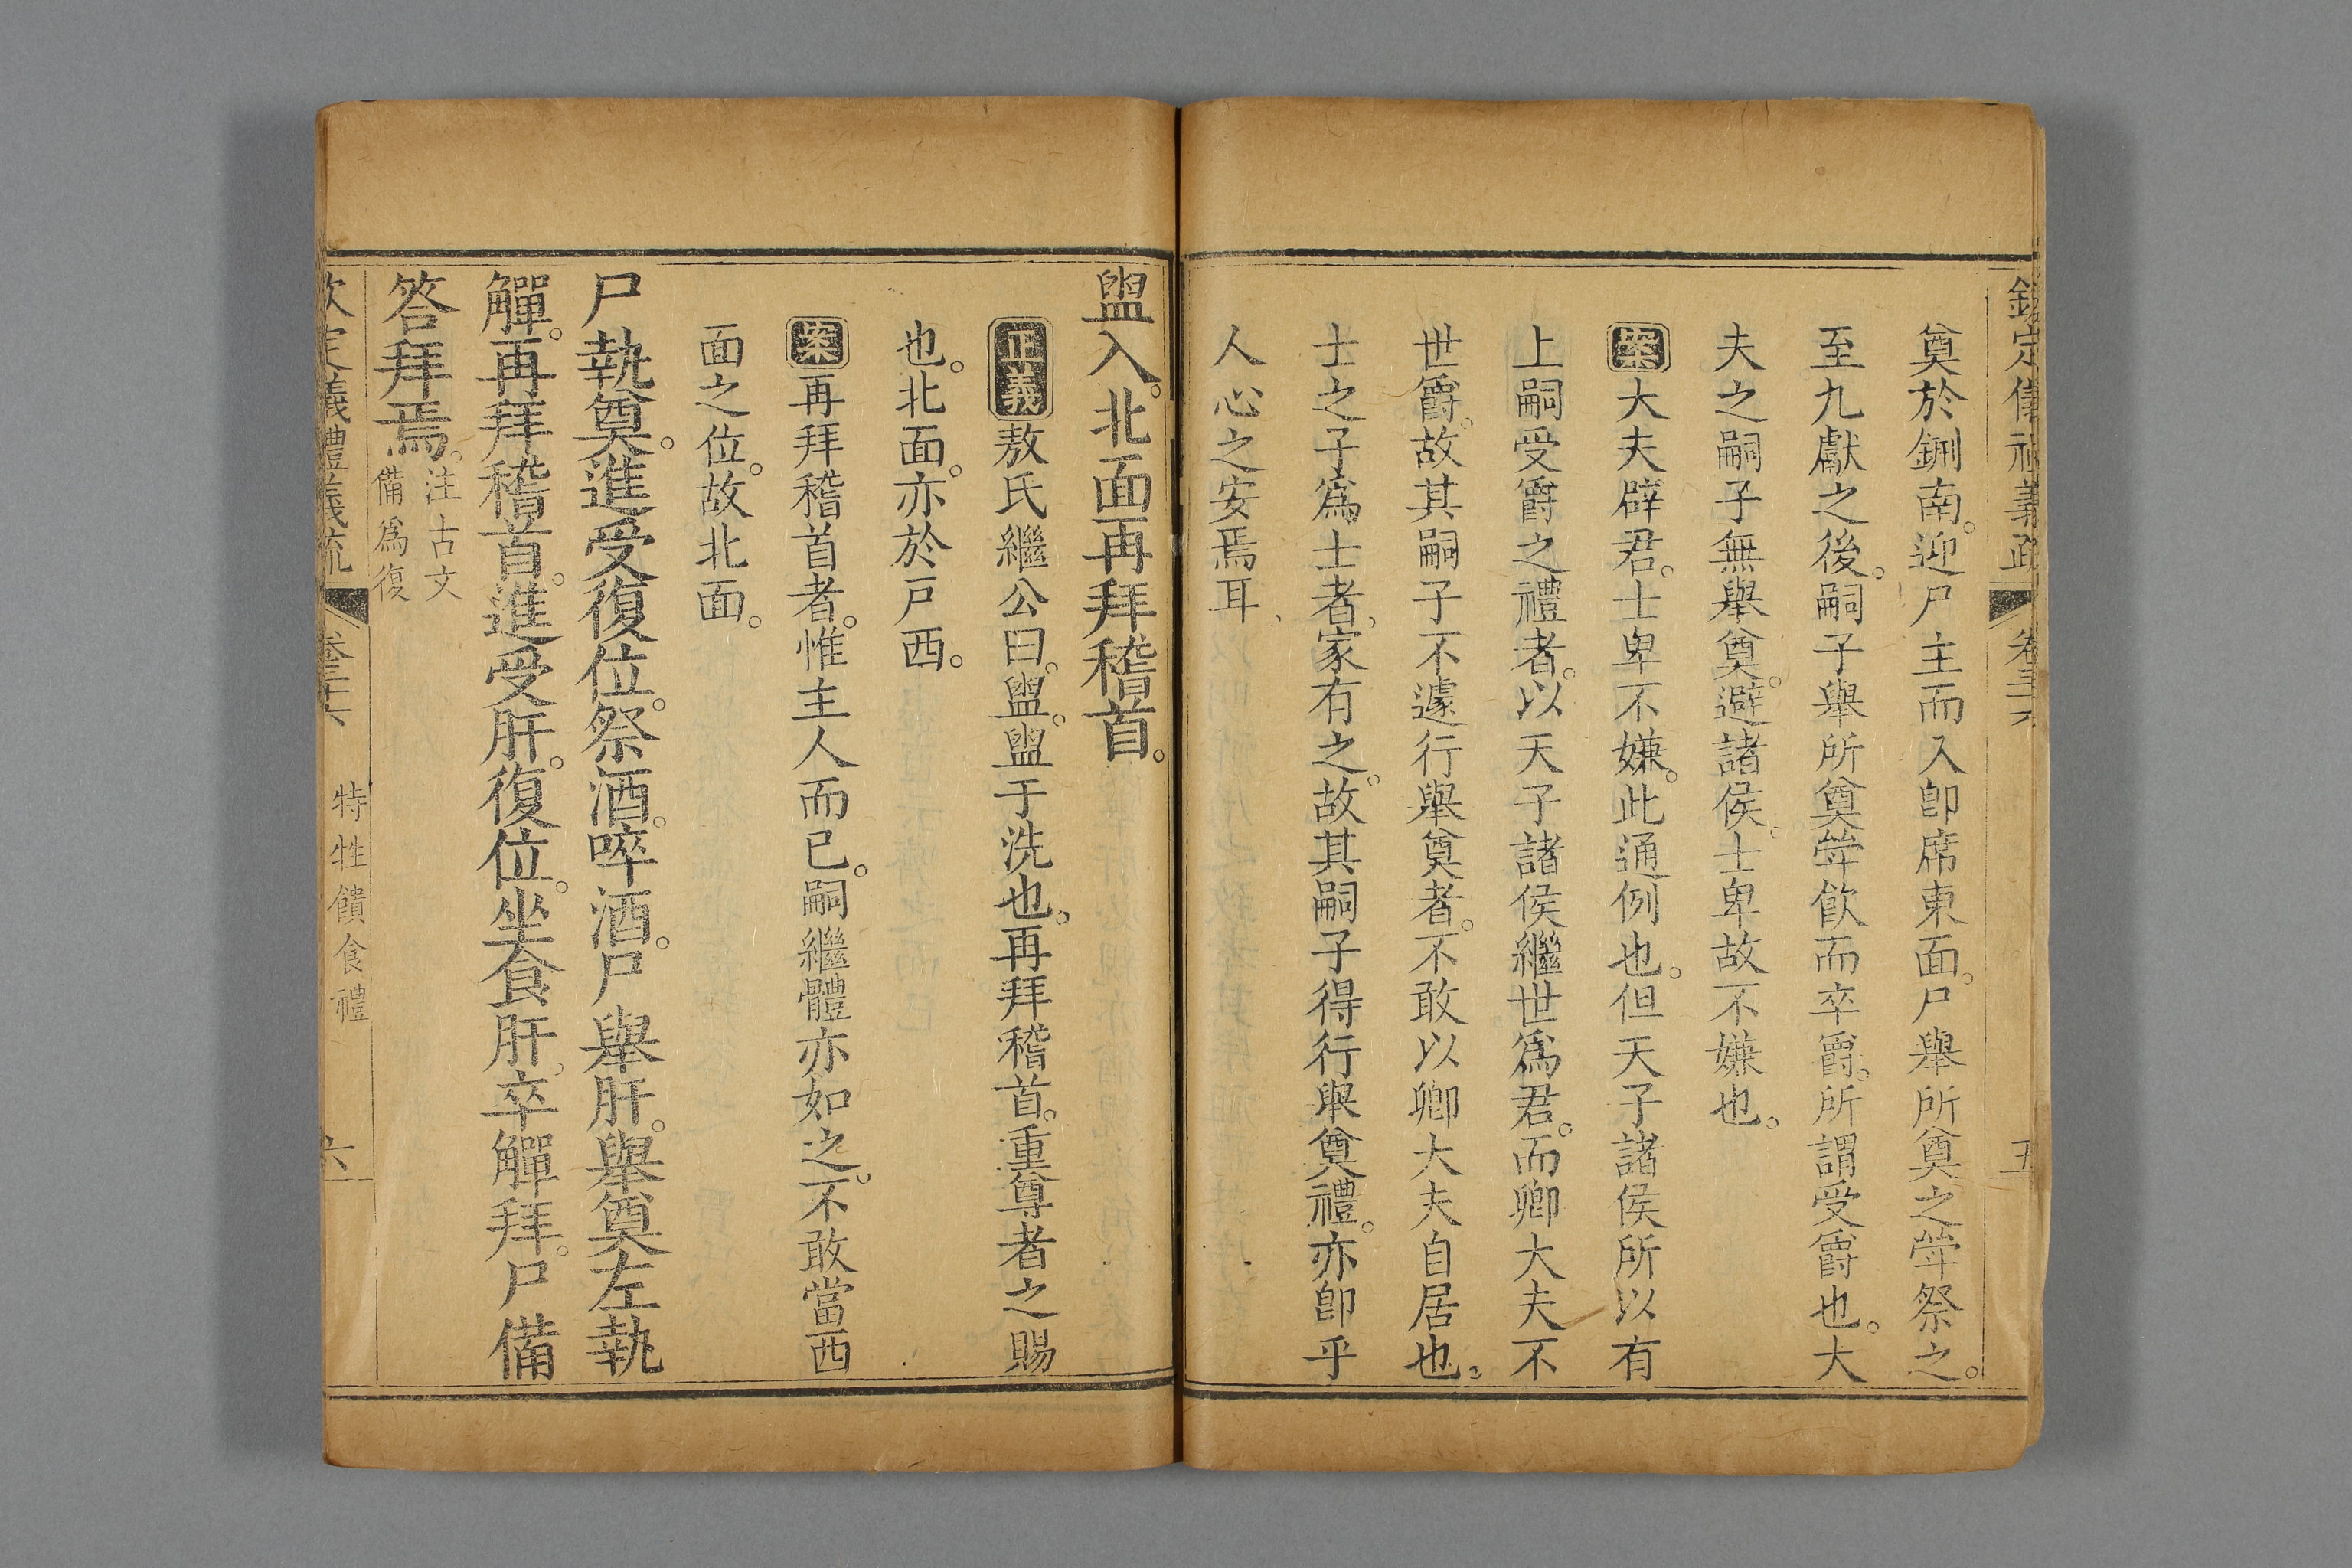 欽定儀禮義疏 卷三十六 五
奠於鉶南。迎尸主而入卽席東面。尸舉所奠之斝祭之。
至九獻之後。嗣子舉所奠斝飮而卒爵。所謂受爵也。大
夫之嗣子無舉奠。避諸侯。士卑故不嫌也。
案大夫辟君。士卑不嫌。此通例也。但天子諸侯所以有
上嗣受爵之禮者。以天子諸侯繼世爲君。而卿大夫不
世爵。故其嗣子不遽行舉奠者。不敢以卿大夫自居也。
士之子爲士者、家有之。故其嗣子得行舉奠禮。亦卽乎
人心之安焉耳、
盥入。北面再拜稽首。
正義敖氏繼公曰。盥。盥于洗也。再拜稽首。重尊者之賜
也。北面。亦於戶西。
案再拜稽首者。惟主人而已。嗣繼體亦如之。不敢當西
面之位。故北面。
尸執奠。進受復位。祭酒。啐酒。尸舉肝。舉奠左執
觶。再拜稽首。進受肝。復位。坐食肝。卒觶拜。尸備
答拜焉。注古文
備爲復
欽定儀禮義疏 卷三十六 特牲饋食禮 六